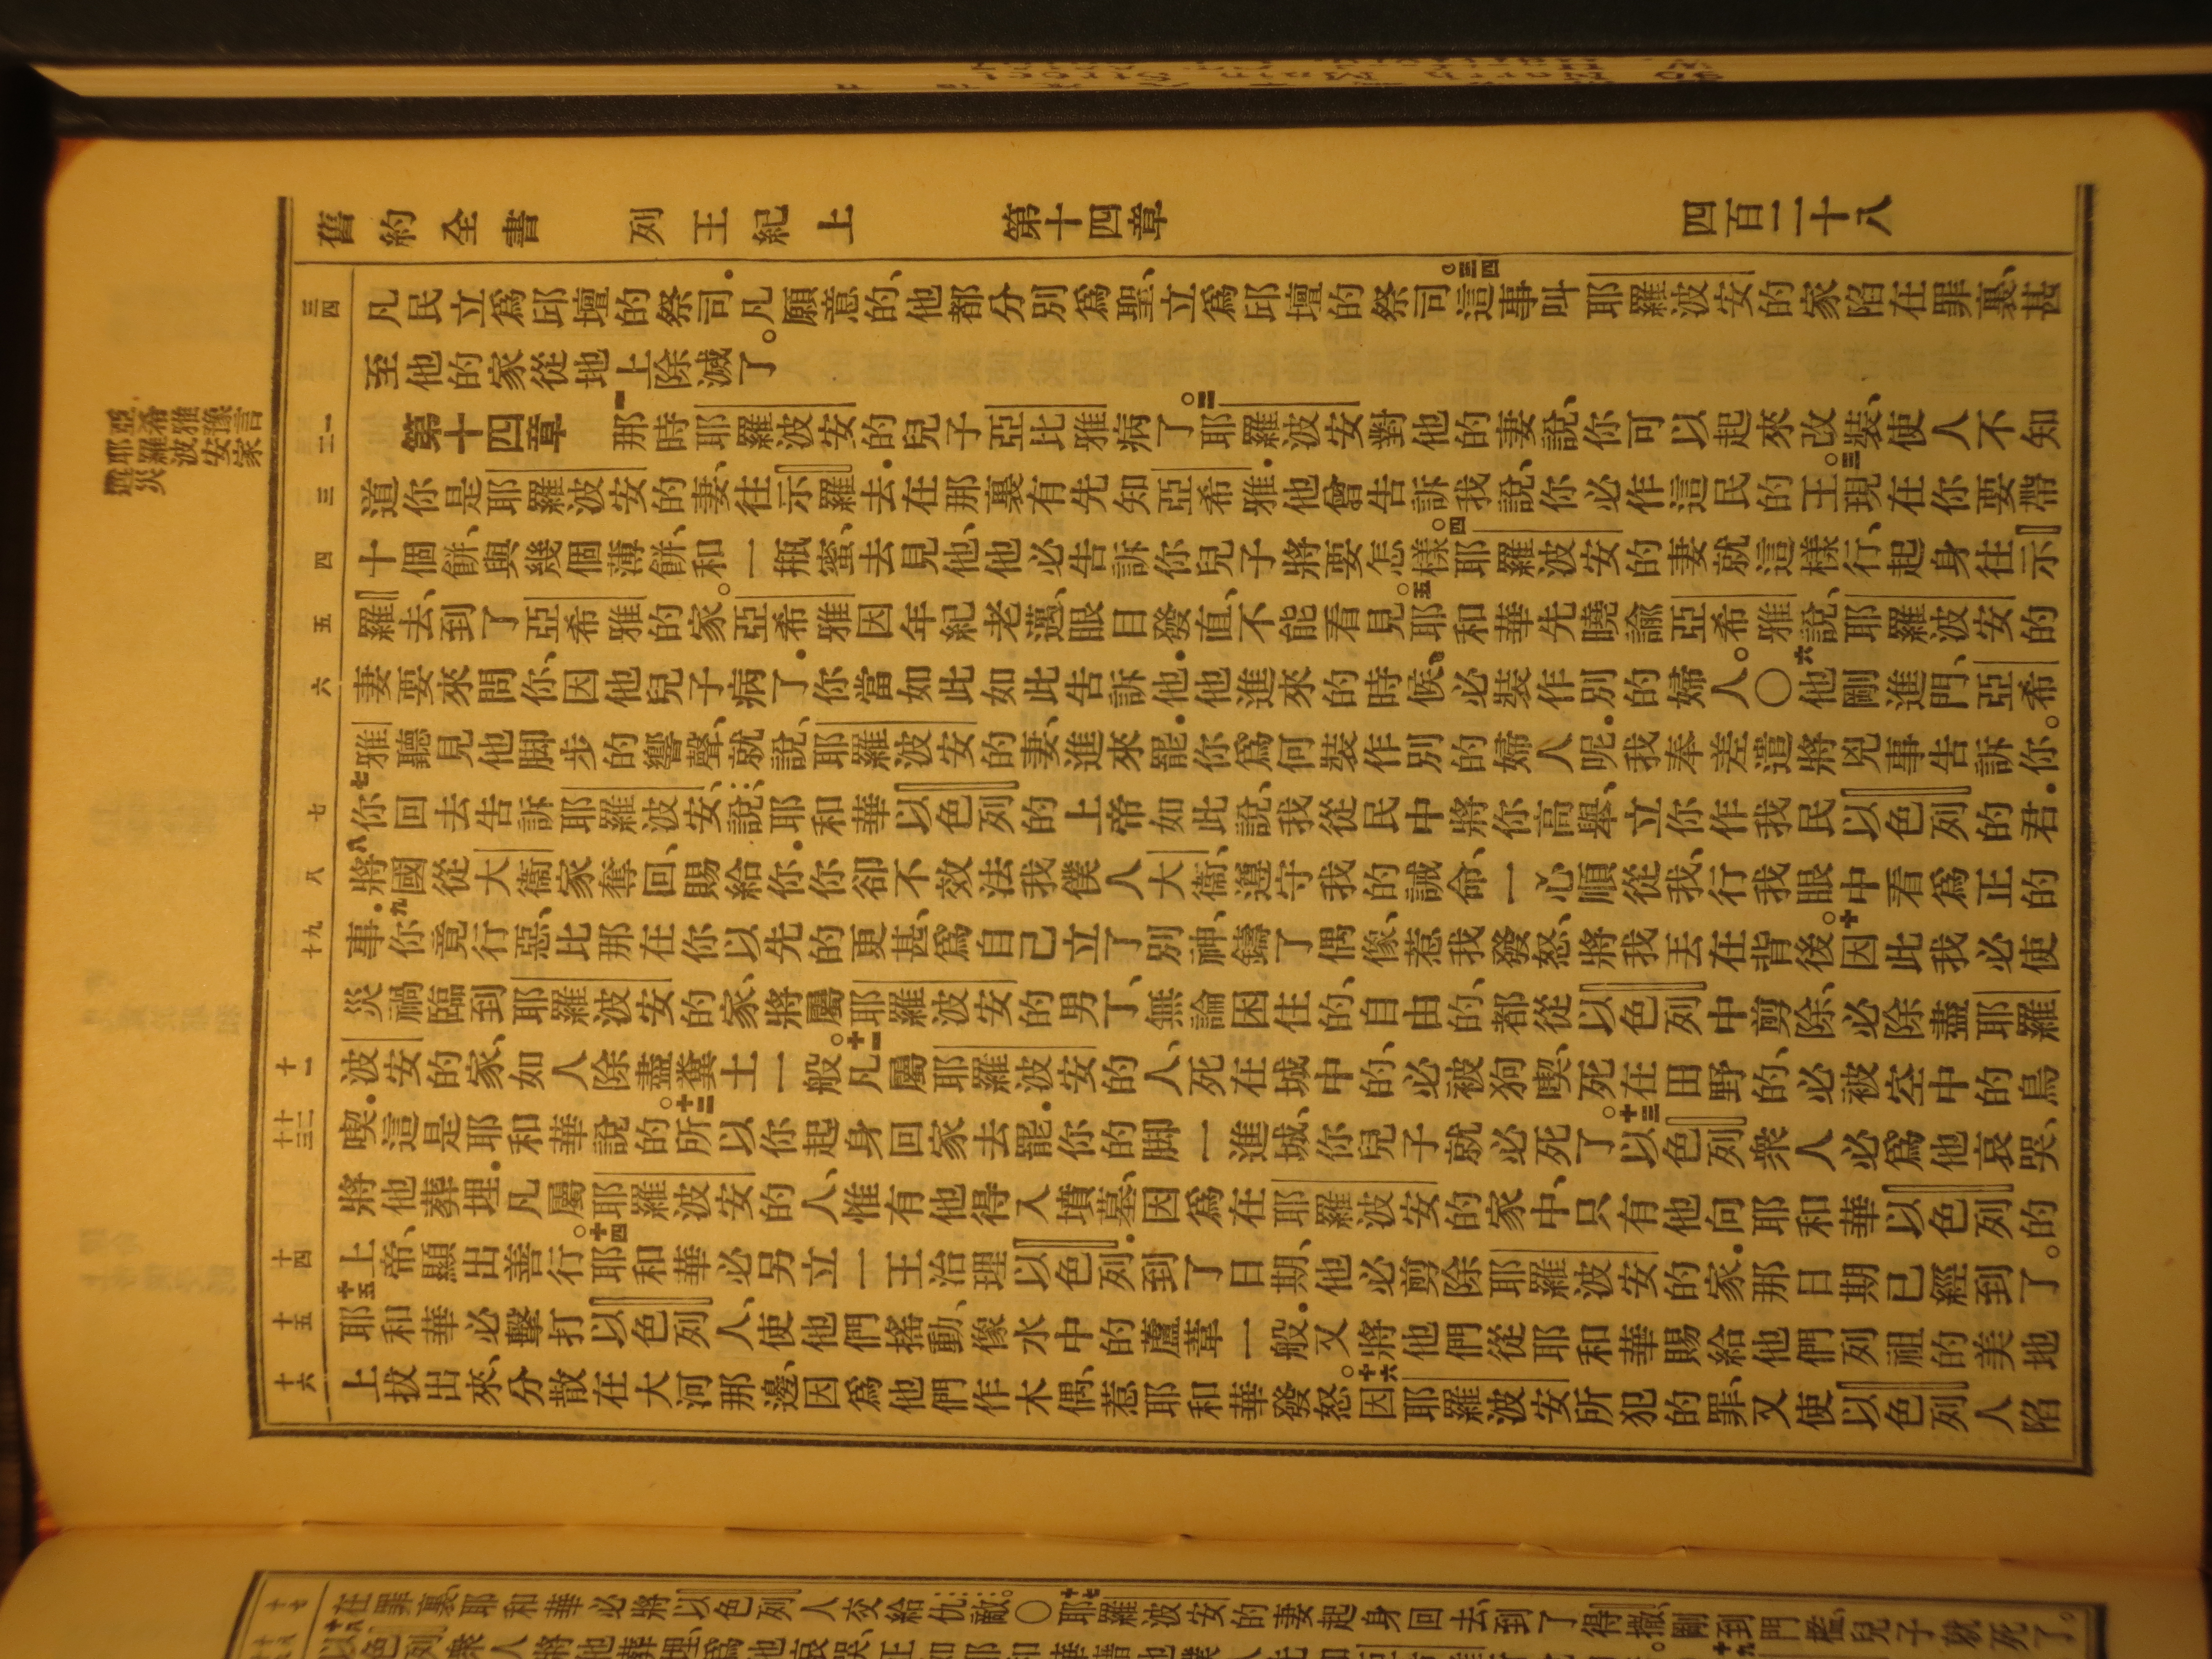 舊約全書 列王紀上 第十四章 四百二十八
凡民立爲邱壇的祭司.凡願意的、他都分別爲聖、立爲邱壇的祭司。三四這事叫耶羅波安的家陷在罪裏、甚
至他的家從地上除滅了。
第十四章 一那時耶羅波安的兒子亞比雅病了。二耶羅波安對他的妻說、你可以起來改裝、使人不知
道你是耶羅波安的妻、往示羅去.在那裏有先知亞希雅.他曾告訴我說、你必作這民的王。三現在你要帶
十個餅、與幾個薄餅、和一瓶蜜、去見他、他必告訴你兒子將要怎樣。四耶羅波安的妻就這樣行、起身往示
羅去、到了亞希雅的家。亞希雅因年紀老邁、眼目發直、不能看見。五耶和華先曉諭亞希雅說、耶羅波安的
妻要來問你、因他兒子病了.你當如此如此告訴他.他進來的時候、必裝作別的婦人。〇六他剛進門、亞希
雅聽見他脚步的響聲、就說、耶羅波安的妻、進來罷.你爲何裝作別的婦人呢.我奉差遣將兇事告訴你。
七你回去告訴耶羅波安、說耶和華以色列的上帝如此說、我從民中將你高舉、立你作我民以色列的君.
八將國從大衞家奪回、賜給你.你卻不效法我僕人大衞、遵守我的誡命、一心順從我、行我眼中看爲正的
事.九你竟行惡、比那在你以先的更甚、爲自己立了別神、鑄了偶像、惹我發怒、將我丟在背後。十因此我必使
災禍臨到耶羅波安的家、將屬耶羅波安的男丁、無論困住的、自由的、都從以色列中剪除、必除盡耶羅
波安的家、如人除盡糞土一般。十一凡屬耶羅波安的人、死在城中的、必被狗喫、死在田野的、必被空中的鳥
喫.這是耶和華說的。十二所以你起身回家去罷.你的脚一進城、你兒子就必死了。十三以色列衆人必爲他哀哭、
將他葬埋.凡屬耶羅波安的人、惟有他得入墳墓、因爲在耶羅波安的家中、只有他向耶和華以色列的
上帝、顯出善行。十四耶和華必另立一王治理以色列.到了日期、他必剪除耶羅波安的家.那日期已經到了。
十五耶和華必擊打以色列人、使他們搖動、像水中的蘆葦一般.又將他們從耶和華賜給他們列祖的美地
上拔出來、分散在大河那邊、因爲他們作木偶、惹耶和華發怒。十六因耶羅波安所犯的罪、又使以色列人陷
三四
一二
三
四
五
六
七
八
九十
十一
十二十三
十四
十五
十六
亞希雅豫言
耶羅波安家
遘災
在罪裏、耶和華必將以色列人交給仇敵。〇十七耶羅波安的妻起身回去、到了得撒、剛到門檻、兒子就死了。
以色列衆人將他葬埋、爲他哀哭、正如耶和華藉他僕人先知